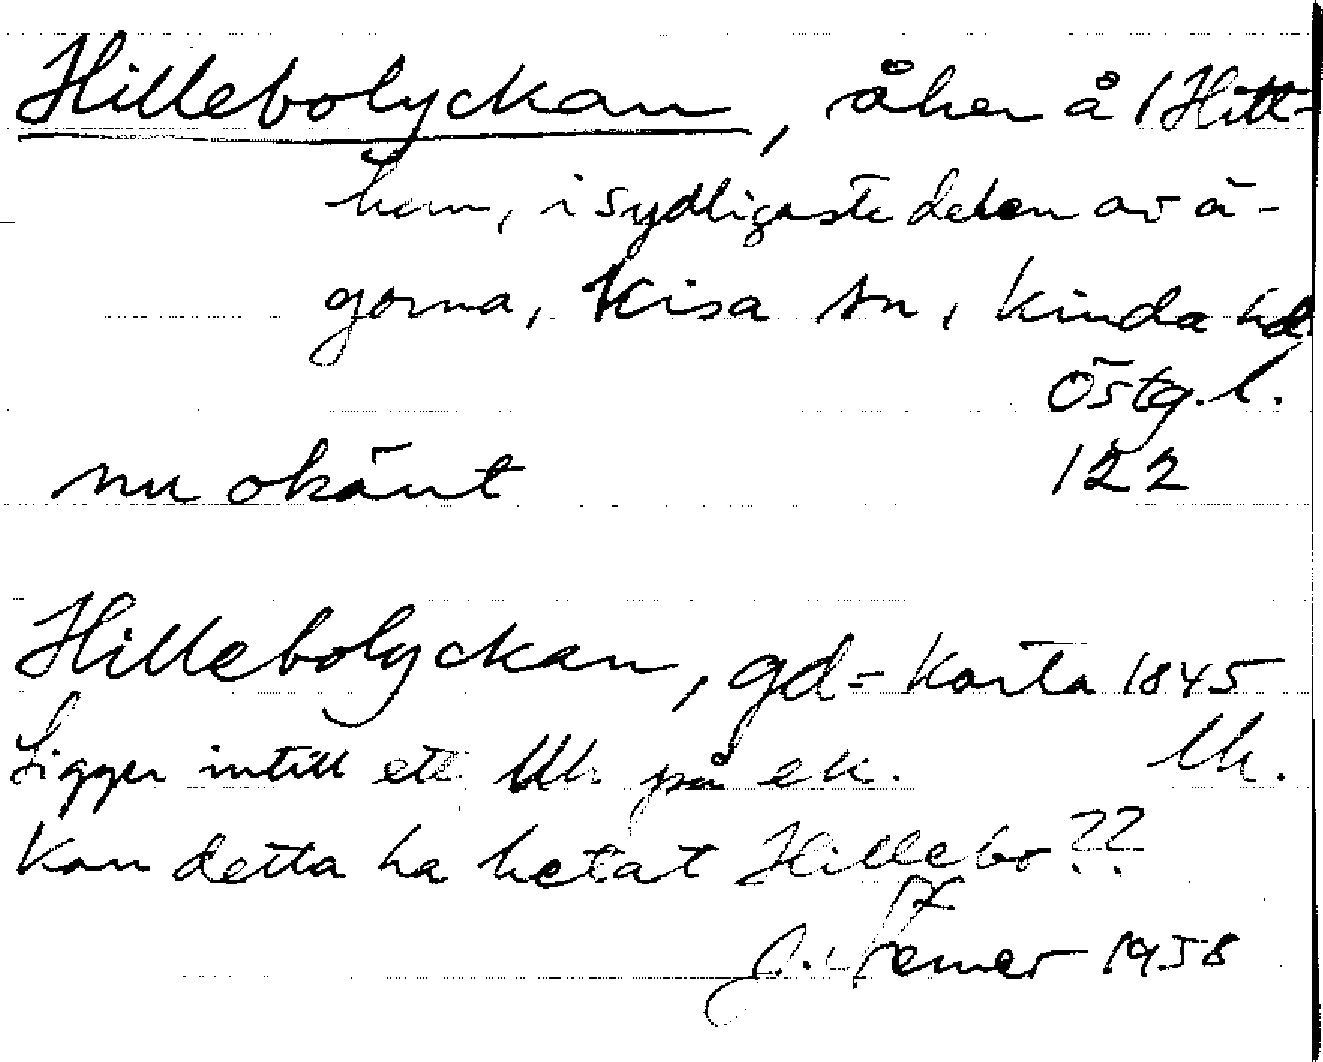 Hillebolyckan, åker å 1 Hitt=
hem, i sydligaste delen av ä-
gorna, Kisa sn, Kinda hd
Östg. l.
nu okänt 122
Hillebolyckan, gd = Karta 1845
Ligger intill ett Uh. på ek. Uh.
Kan detta ha hetat Hillebo??
1958